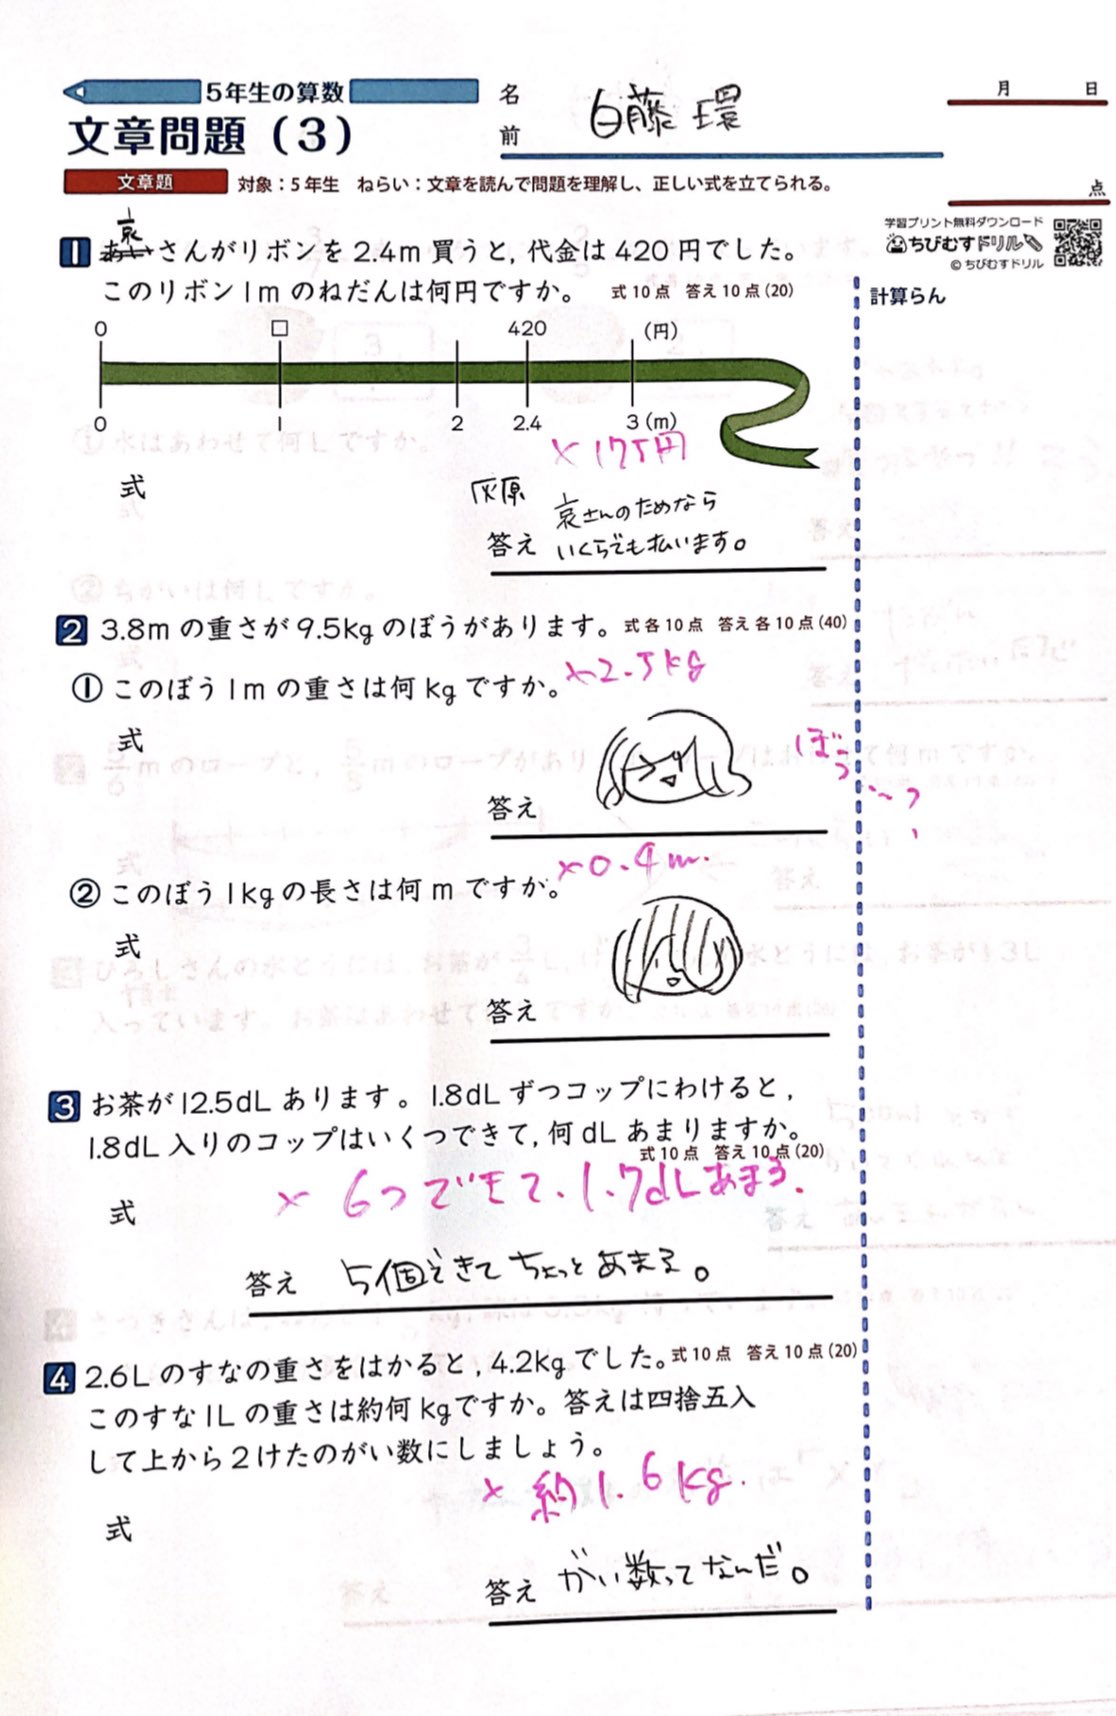 5年生の算数
文章問題（3）
名前 白藤 環
月 日
点
文章題 対象：5年生 ねらい：文章を読んで問題を理解し、正しい式を立てられる。
学習プリント無料ダウンロード
ちびむすドリル
© ちびむすドリル
哀
1 あいさんがリボンを2.4m買うと，代金は420円でした。
このリボン1mのねだんは何円ですか。 式10点 答え10点（20）
計算らん
0 □ 420 （円）
0 1 2 2.4 3（m）
× 175円
式
灰原
哀さんのためなら
答え いくらでも払います。
2 3.8mの重さが9.5kgのぼうがあります。 式各10点 答え各10点（40）
×2.5kg
① このぼう1mの重さは何kgですか。
式
ぼっ
答え
×0.4m.
② このぼう1kgの長さは何mですか。
式
答え
3 お茶が12.5dLあります。1.8dLずつコップにわけると，
1.8dL入りのコップはいくつできて，何dLあまりますか。
式10点 答え10点（20）
× 6つできて、1.7dLあまる.
式
答え 5個できてちょっとあまる。
4 2.6Lのすなの重さをはかると，4.2kgでした。 式10点 答え10点（20）
このすな1Lの重さは約何kgですか。答えは四捨五入
して上から2けたのがい数にしましょう。
× 約1.6kg.
式
答え がい数ってなんだ。